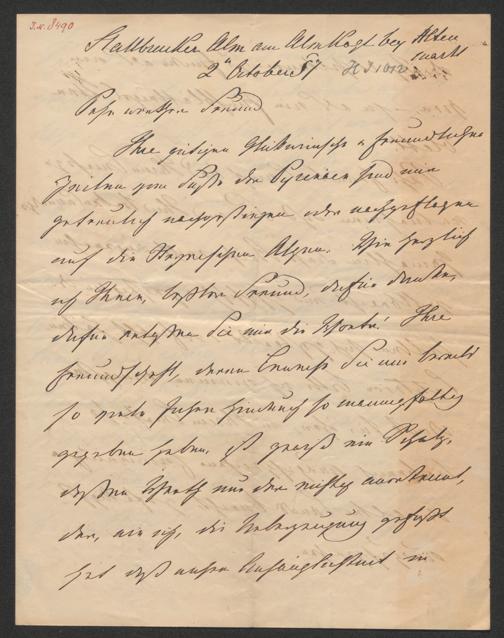 I.N. 8490
Stallbrucken Alm am Almkogl bey Alten
markt
2n October 57
Sehr werther Freund
Ihre gütigen Glückwünsche u freundlichen
Zeilen vom Fuße der Pyrenäen sind mir
getreulich nachgestiegen oder nachgeflogen
auf die Steyrischen Alpen. Wie herzlich
ich Ihnen, bester Freund, dafür danke,
dafür erlassen Sie mir die Worte! Ihre
Freundschaft, deren Beweise Sie mir bereits
so viele Jahre hindurch so mannigfaltig
gegeben haben, ist gewiß ein Schatz,
dessen Werth nur der richtig anerkennt,
der, wie ich, die Ueberzeugung gefaßt
hat daß unsre Anhänglichkeit in